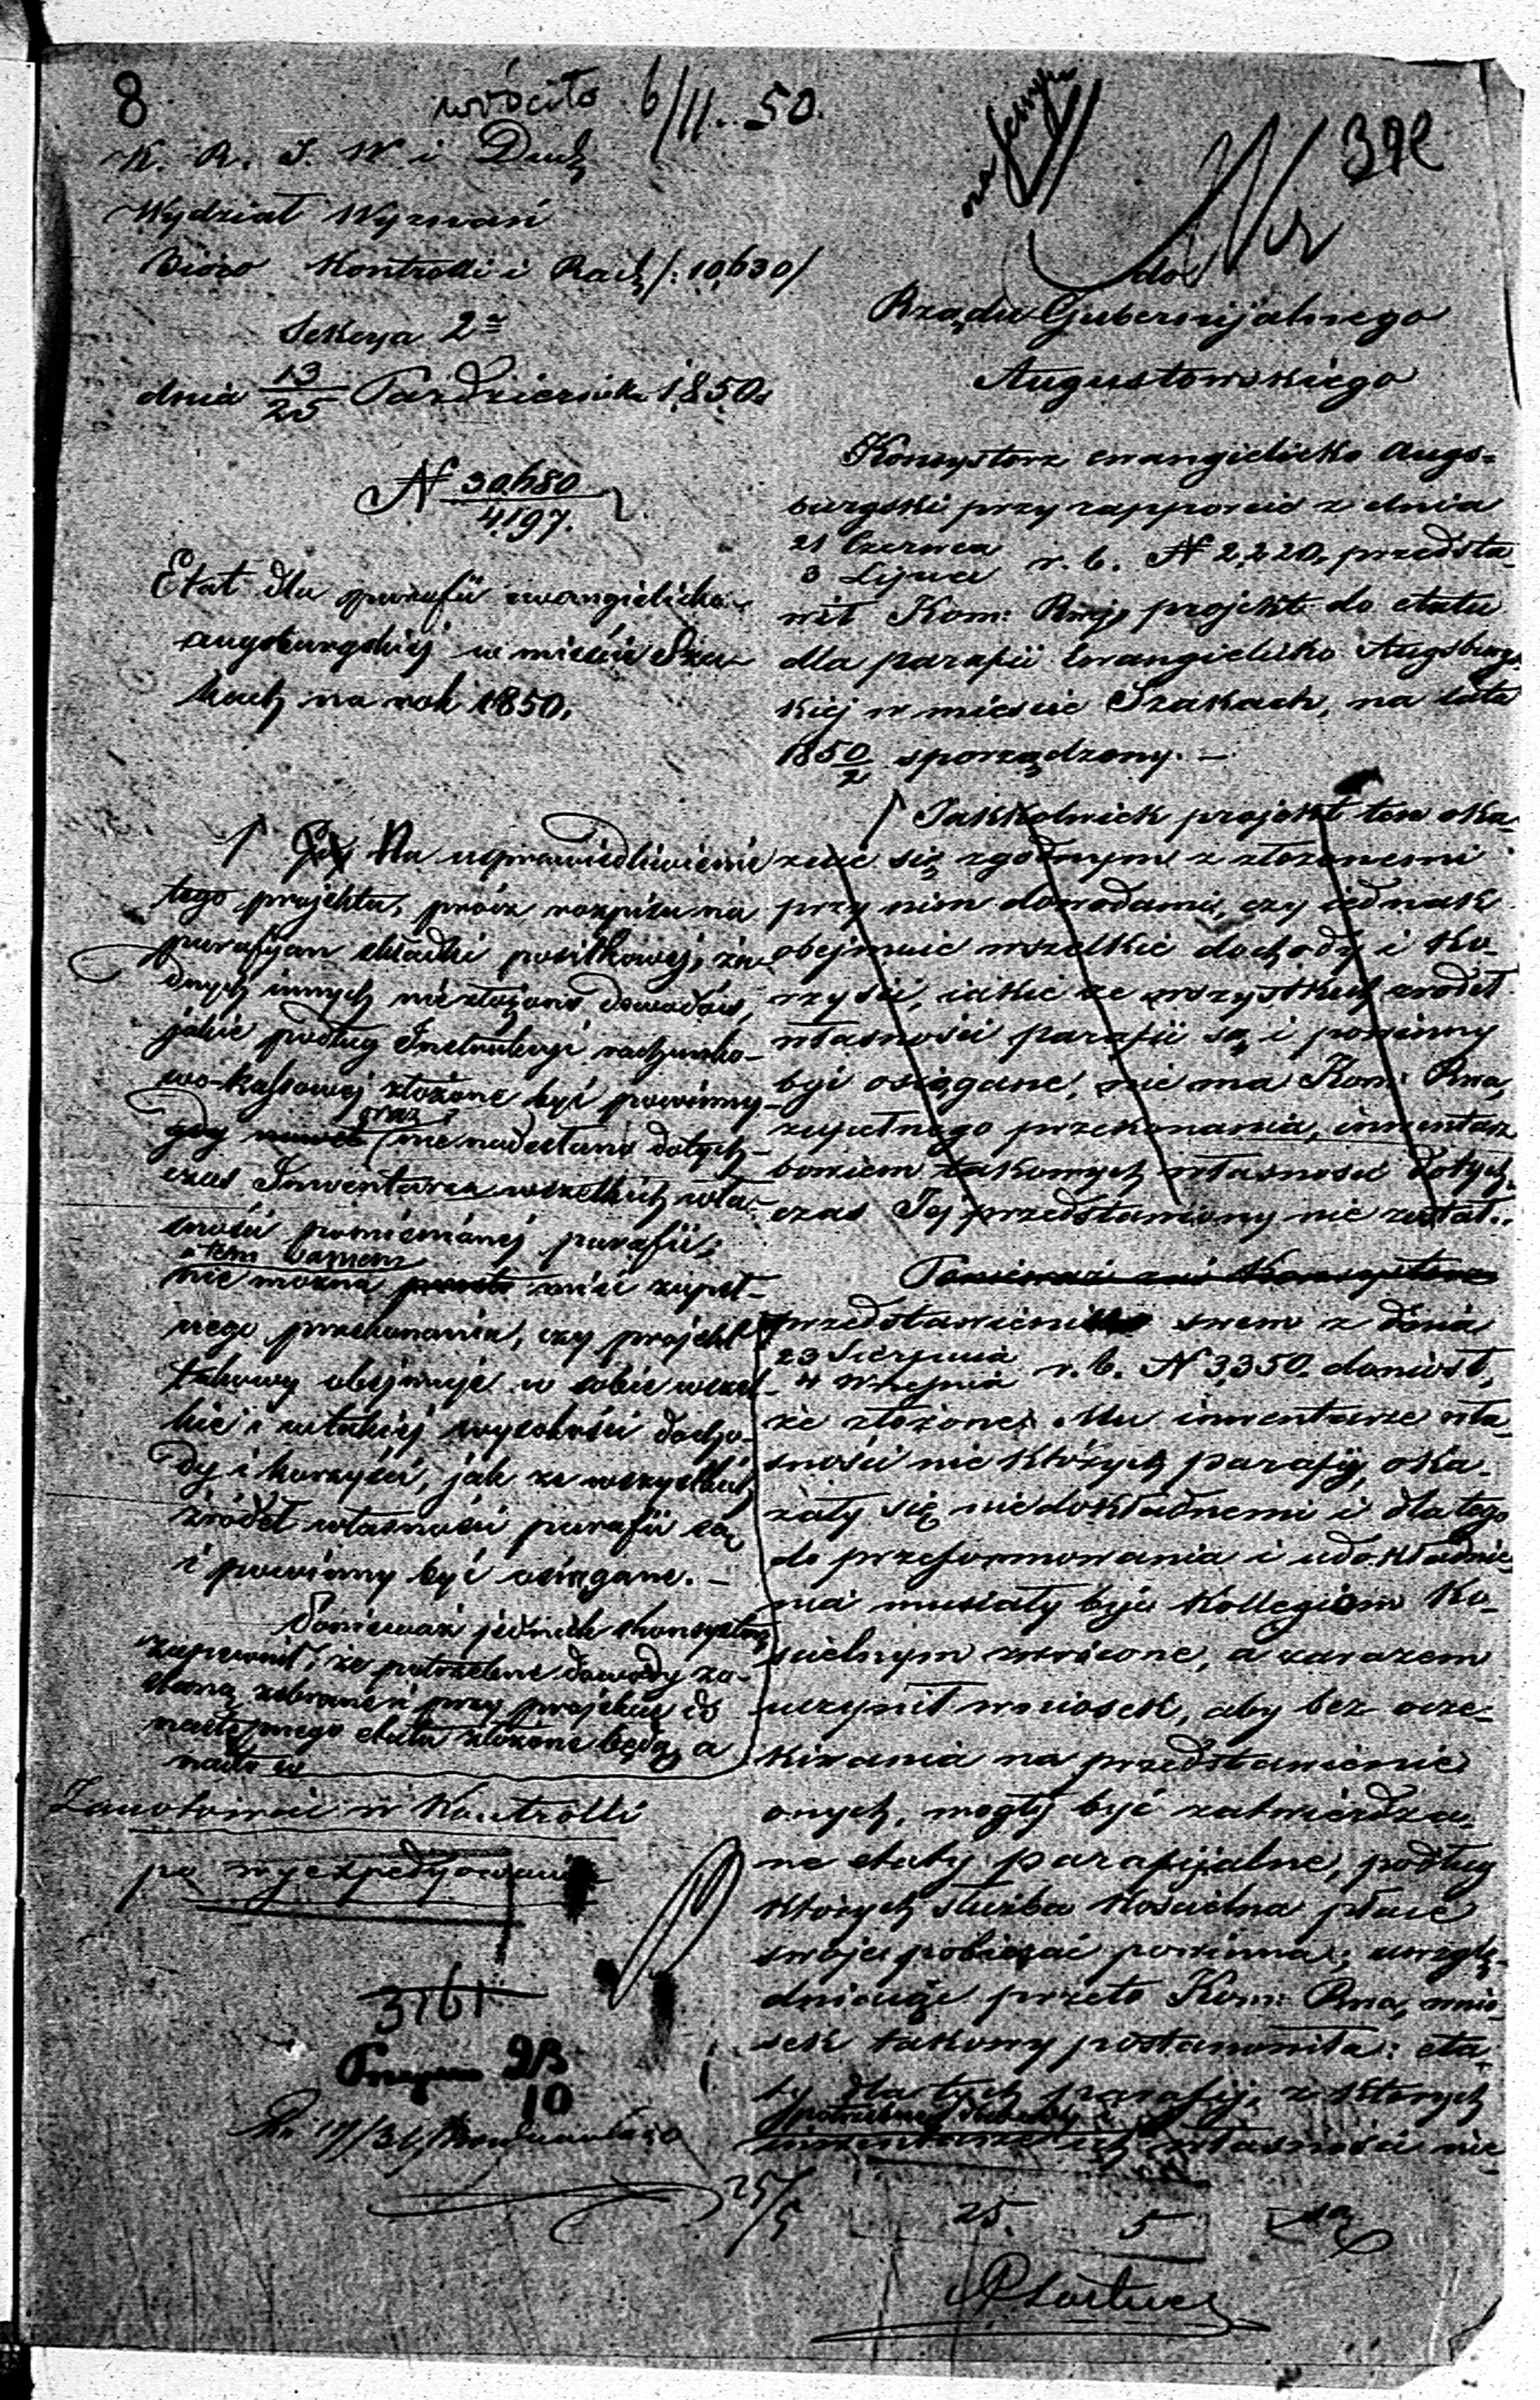 8
wróciło 6/11. 50.
392
K. R. S. W i Duch
Wydział Wyznań
Bióro Kontrolli i Rach /: 10,630 /
Sekcya 2a
dnia 13/25 Października 1850.
N 30,680/4,197.
Etat dla parafii ewangielicko
augsburgskiej w mieście Sza-
kach na rok 1850.
Na usprawiedliwienie
tego projektu, prócz rozpisu na
parafijan składki posiłkowej, ża-
dnych innych nie złożono dowodów,
jakie podług Instrukcyi rachunko-
wo-kassowej złożone być powinny
gdy oraz nie nadesłano dotych-
czas Inwentarza wszelkich wła-
sności pomienionej parafii;
a tem samem
nie można mieć zupeł-
nego przekonania, czy projekt
takowy obejmuje w sobie wszel-
kie i w takiej wysokości docho-
dy i korzyści, jak ze wszystkich
źródeł własności parafii są
i powinny być osiągane. –
Ponieważ jednak Konsystorz
zapewnił, że potrzebne dowody zo-
staną zebrane i przy projekcie do
następnego etatu złożone będą, a
nadto w
Zanotować w Kontrolli
po wyexpedyowaniu
3161
28
10
25/5
Nr
do
Rządu Gubernijalnego
Augustowskiego
Konsystorz ewangielicko Augs-
burgski przy rapporcie z dnia
21 Czerwca/3 Lipca r. b. N 2,220, przedsta-
wił Kom: Rząj projekt do etatu
dla parafii Ewangielicko Augsburgs
kiej w mieście Szakach, na lata
1850/2 sporządzony. –
Jakkolwiek projekt ten oka-
zuie się zgodnym z złożonemi
przy nim dowodami, czy iednak
obejmuie wszelkie dochody i ko-
rzyści, iakie ze wszystkich źrodeł
własności parafii są i powinny
być osiągane, nie ma Kom: Rząa
zupełnego przekonania, inwentarz
bowiem takowych własności dotych-
czas Jej przedstawiony nie został.
Ponieważ zaś Konsystorz
przedstawieniem swem z dnia
23 Sierpnia/4 Września r. b. N 3,350. doniosł,
że złożone Mu inwentarze wła-
sności nie których parafij, oka-
zały się niedokładnemi i dla tego
do przeformowania i udokładnie
nia musiały być Kollegiom Ko-
ścielnym zwrócone, a zarazem
uczynił wniosek, aby bez ocze-
kiwania na przedstawienie
onych, mogły być zatwierdza-
ne etaty parafijalne, podług
których służba kościelna płace
swoje pobierać powinna; uwzglę-
dniaiąc przeto Kom: Rząa, wnio
sek takowy postanowiła: eta-
ty dla tych parafij, z których
potrzebne dowody i
inwentarze ich własności nie
25. 5